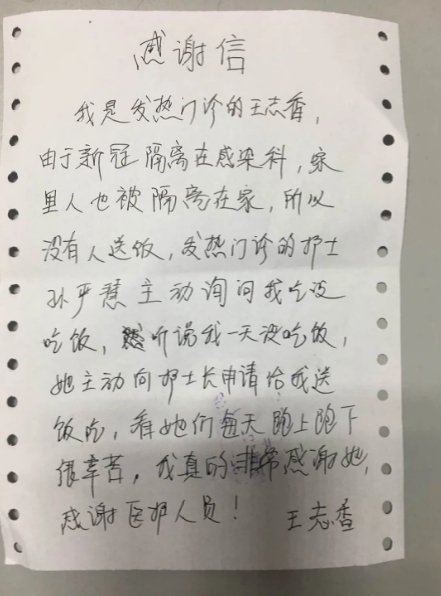 感谢信
我是发热门诊的王志香，
由于新冠隔离在感染科，家
里人也被隔离在家，所以
没有人送饭，发热门诊的护士
孙严慧主动询问我吃没
吃饭，听说我一天没吃饭，
她主动向护士长申请给我送
饭吃，看她们每天跑上跑下
很辛苦，我真的非常感谢她，
感谢医护人员！ 王志香